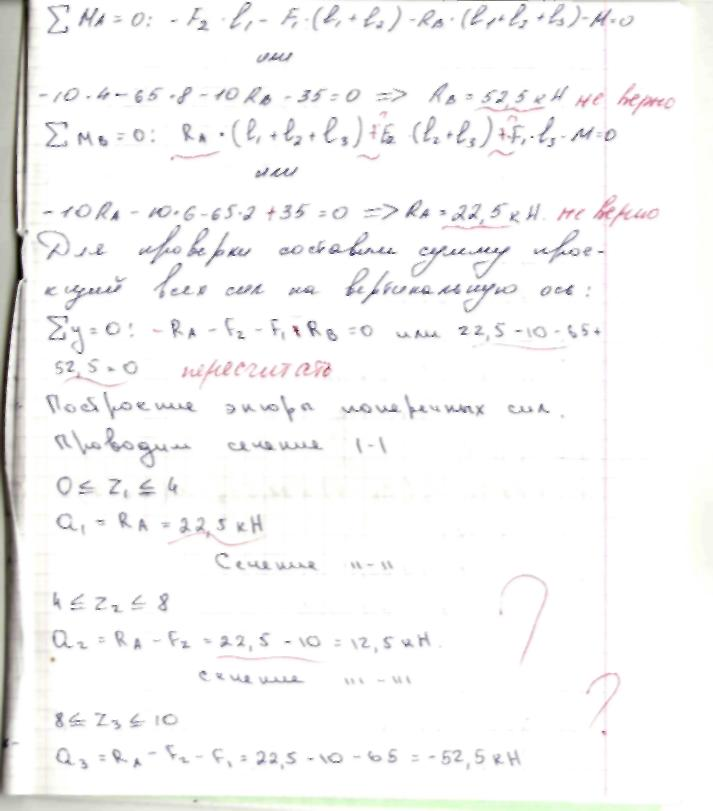 ∑ MA = 0: - F2 · l1 - F1 · (l1 + l2) - RB · (l1 + l2 + l3) - M = 0
или
-10·4 - 65·8 - 10RB - 35 = 0 => RB = 52,5 кН не верно
∑ MB = 0: RA · (l1 + l2 + l3) + F2 · (l2 + l3) + F1 · l3 - M = 0
или
-10RA - 10·6 - 65·2 + 35 = 0 => RA = 22,5 кН. не верно
Для проверки составим сумму прое-
кций всех сил на вертикальную ось:
∑y = 0: - RA - F2 - F1 + RB = 0 или 22,5 - 10 - 65 +
52,5 = 0 пересчитать
Построение эпюры поперечных сил.
Проводим сечение I-I
0 ≤ Z1 ≤ 4
Q1 = RA = 22,5 кН
Сечение II-II
4 ≤ Z2 ≤ 8
Q2 = RA - F2 = 22,5 - 10 = 12,5 кН. ?
сечение III-III
8 ≤ Z3 ≤ 10 ?
Q3 = RA - F2 - F1 = 22,5 - 10 - 65 = -52,5 кН